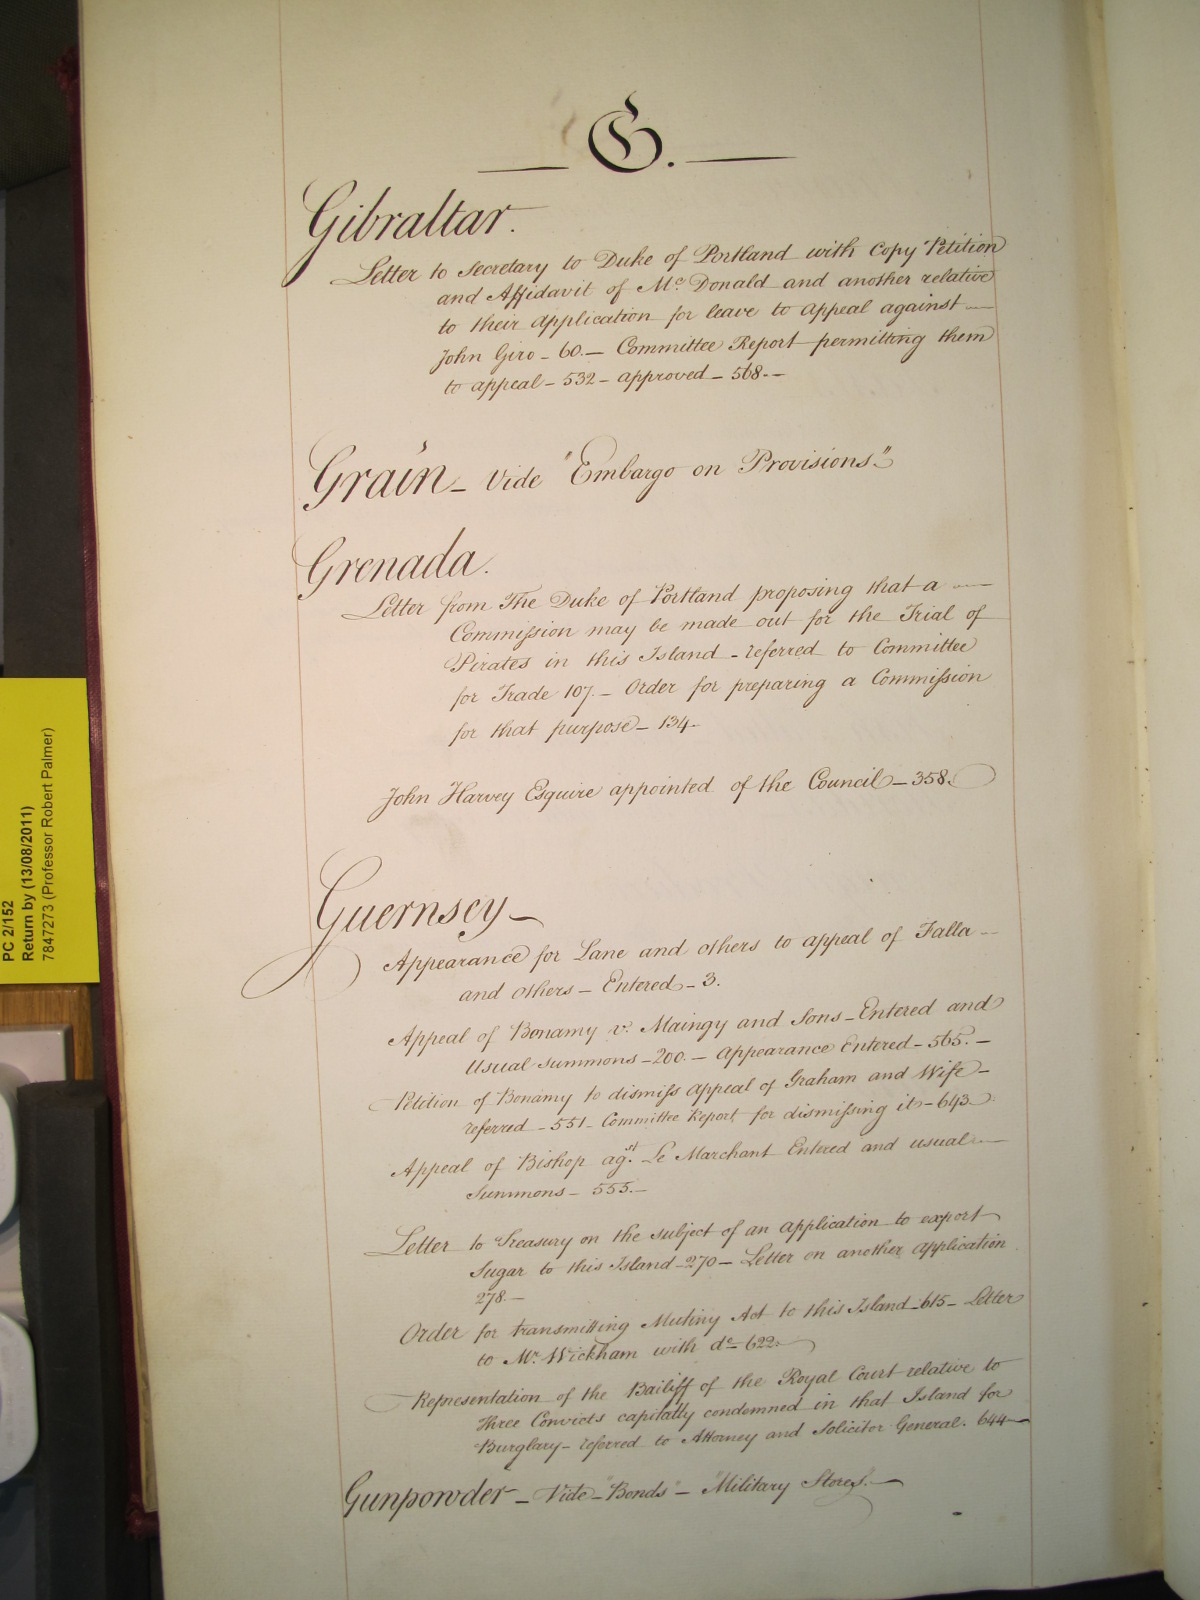 G.
Gibraltar.
Letter to Secretary to Duke of Portland with Copy Petition
and Affidavit of Mc. Donald and another relative
to their application for leave to appeal against
John Giro - 60. - Committee Report permitting them
to appeal - 532 - approved - 568. -
Grain - vide "Embargo on Provisions"
Grenada.
Letter from The Duke of Portland proposing that a
Commission may be made out for the Trial of
Pirates in this Island - referred to Committee
for Trade 107. - Order for preparing a Commission
for that purpose - 134 -
John Harvey Esquire appointed of the Council - 358.
Guernsey -
Appearance for Lane and others to appeal of Falla -
and others - Entered - 3.
Appeal of Bonamy v. Maingy and Sons - Entered and
Usual summons - 200. - Appearance Entered - 565. -
Petition of Bonamy to dismiss appeal of Graham and Wife -
referred - 551 - Committee Report for dismissing it - 643
Appeal of Bishop agst. Le Marchant Entered and usual
Summons - 555. -
Letter to Treasury on the subject of an application to export
Sugar to this Island - 270 - Letter on another application
278. -
Order for transmitting Mutiny Act to this Island - 615 - Letter
to Mr. Wickham with do - 622.
Representation of the Bailiff of the Royal Court relative to
three Convicts capitally condemned in that Island for
Burglary - referred to Attorney and Solicitor General. 644 -
Gunpowder - Vide - "Bonds" - "Military Stores". -
PC 2/152
Return by (13/08/2011)
7847273 (Professor Robert Palmer)